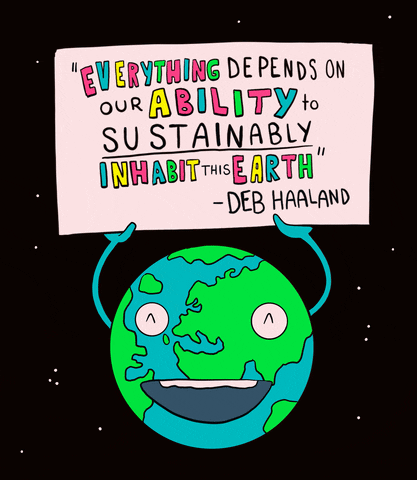 "EVERYTHING DEPENDS ON
OUR ABILITY to
SUSTAINABLY
INHABIT THIS EARTH"
-DEB HAALAND